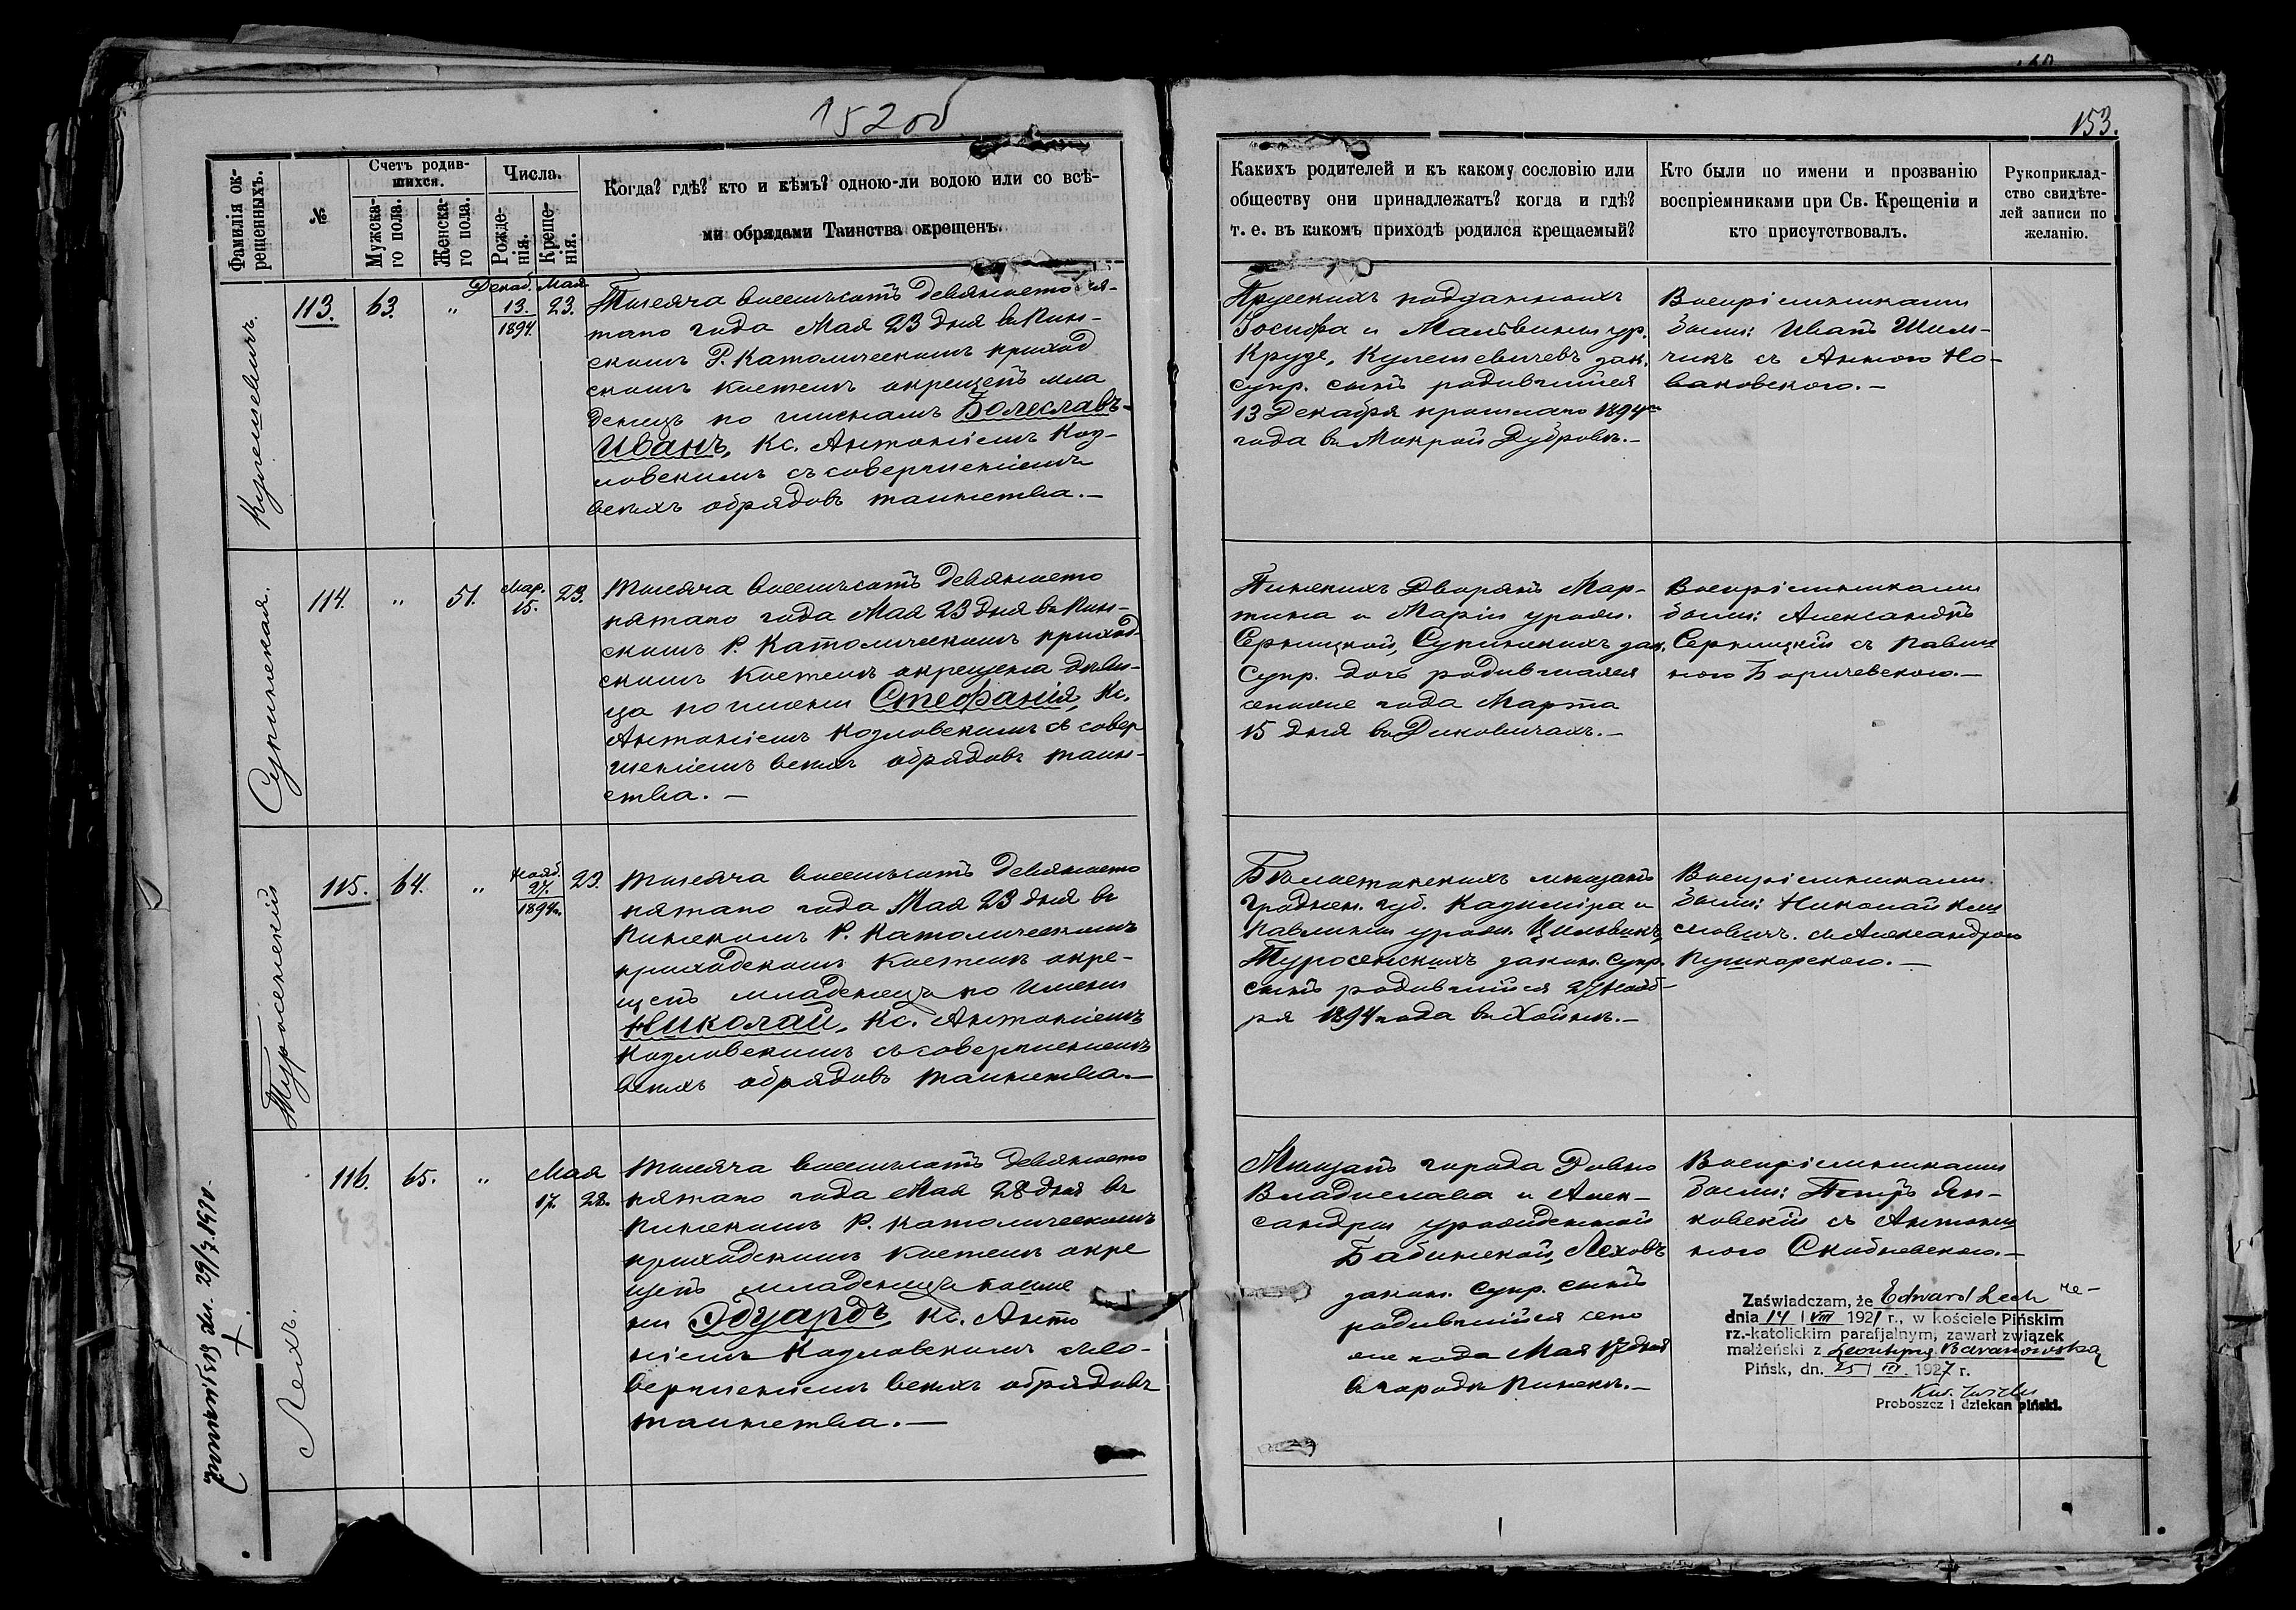 152об
153.
Фамилія ок-
рещенныхъ.
№
Счетъ родив-
шихся.
Мужска-
го пола.
Женска-
го пола.
Числа.
Рожде-
нія.
Креще-
нія.
Когда? гдѣ? кто и кѣмъ? одною-ли водою или со всѣ-
ми обрядами Таинства окрещенъ.
Каких​ъ родителей и къ какому сословію или
обществу они принадлежатъ? когда и гдѣ?
т. е. въ какомъ приходѣ родился крещаемый?
Кто были по имени и прозванію
воспріемниками при Св. Крещеніи и
кто присутствовалъ.
Рукоприклад-
ство свидѣте-
лей записи по
желанію.
Кулешевичъ.
113.
63.
"
Декаб.
13.
1894
Мая
23.
Тысяча восемьсотъ девяносто пя-
таго года Мая 23 дня въ Пин-
скомъ Р. Католическомъ приход
скомъ костелѣ окрещенъ мла
денецъ по именамъ Болеславъ-
Иванъ, Кс. Антоніемъ Коз-
ловскимъ съ совершеніемъ
всѣхъ обрядовъ таинства.—
Прусскихъ подданныхъ
Іосифа и Мальвины ур.
Круде, Кулешевичевъ зак.
супр. сынъ родившійся
13 Декабря прошлаго 1894го
года въ Мокрой Дубровѣ.—
Воспріемниками
были: Иванъ Шим-
чикъ съ Анною Но-
ваковскою.—
Супинская.
114.
"
51.
Мар.
15.
23.
Тысяча восемьсотъ девяносто
пятаго года Мая 23 дня въ Пин-
скомъ Р. Католическомъ приход-
скомъ костелѣ окрещена дѣви-
ца по имени Стефанія, Кс.
Антоніемъ Козловскимъ съ совер
шеніемъ всѣхъ обрядовъ таин-
ства.—
Пинскихъ Дворянъ Мар-
тина и Маріи урожд.
Серницкой, Супинскихъ зак.
Супр. дочь родившаяся
сего же года Марта
15 дня въ Диковичахъ.—
Воспріемниками
были: Александръ
Серницкій съ Павли
ною Боричевскою.—
Туросенскій
115.
64.
"
Нояб.
27.
1894г.
23.
Тысяча восемьсотъ девяносто
пятаго года Мая 23 дня въ
Пинскомъ Р. Католическомъ
приходскомъ костелѣ окре-
щенъ младенецъ по имени
Николай, Кс. Антоніемъ
Козловскимъ съ совершеніемъ
всѣхъ обрядовъ таинства.—
Бѣлостокскихъ мѣщанъ
Гроднен. губ. Казиміра и
Павлины урожд. Цильвикъ,
Туросенскихъ закон. Супр.
сынъ родившійся 27 Нояб-
ря 1894 года въ Хойнѣ.—
Воспріемниками
были: Николай Кли
мовичъ съ Александрою
Пушкарскою.—
Лехъ.
116.
65.
"
Мая
17.
28.
Тысяча восемьсотъ девяносто
пятаго года Мая 28 дня въ
Пинскомъ Р. Католическомъ
приходскомъ костелѣ окре
щенъ младенецъ по име
ни Эдуардъ, Кс. Анто
ніемъ Козловскимъ съ со-
вершеніемъ всѣхъ обрядовъ
таинства.—
Мѣщанъ города Ровно
Владислава и Алек-
сандры урожденной
Бабинской, Леховъ
закон. Супр. сынъ
родившійся сего
же года Мая 17 дня
въ городѣ Пинскѣ.—
Воспріемниками
были: Петръ Ян-
ковскій съ Антони
ною Скибневскою.—
Zaświadczam, że Edward Lech
dnia 14 / VIII 1921 r., w kościele Pińskim
rz.-katolickim parafjalnym, zawarł związek
małżeński z Leontyną Baranowską
Pińsk, dn. 25 / III. 1927 r.
Proboszcz i dziekan piński.